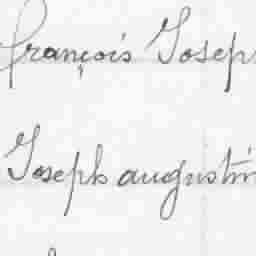 françois Josep
Joseph augustin